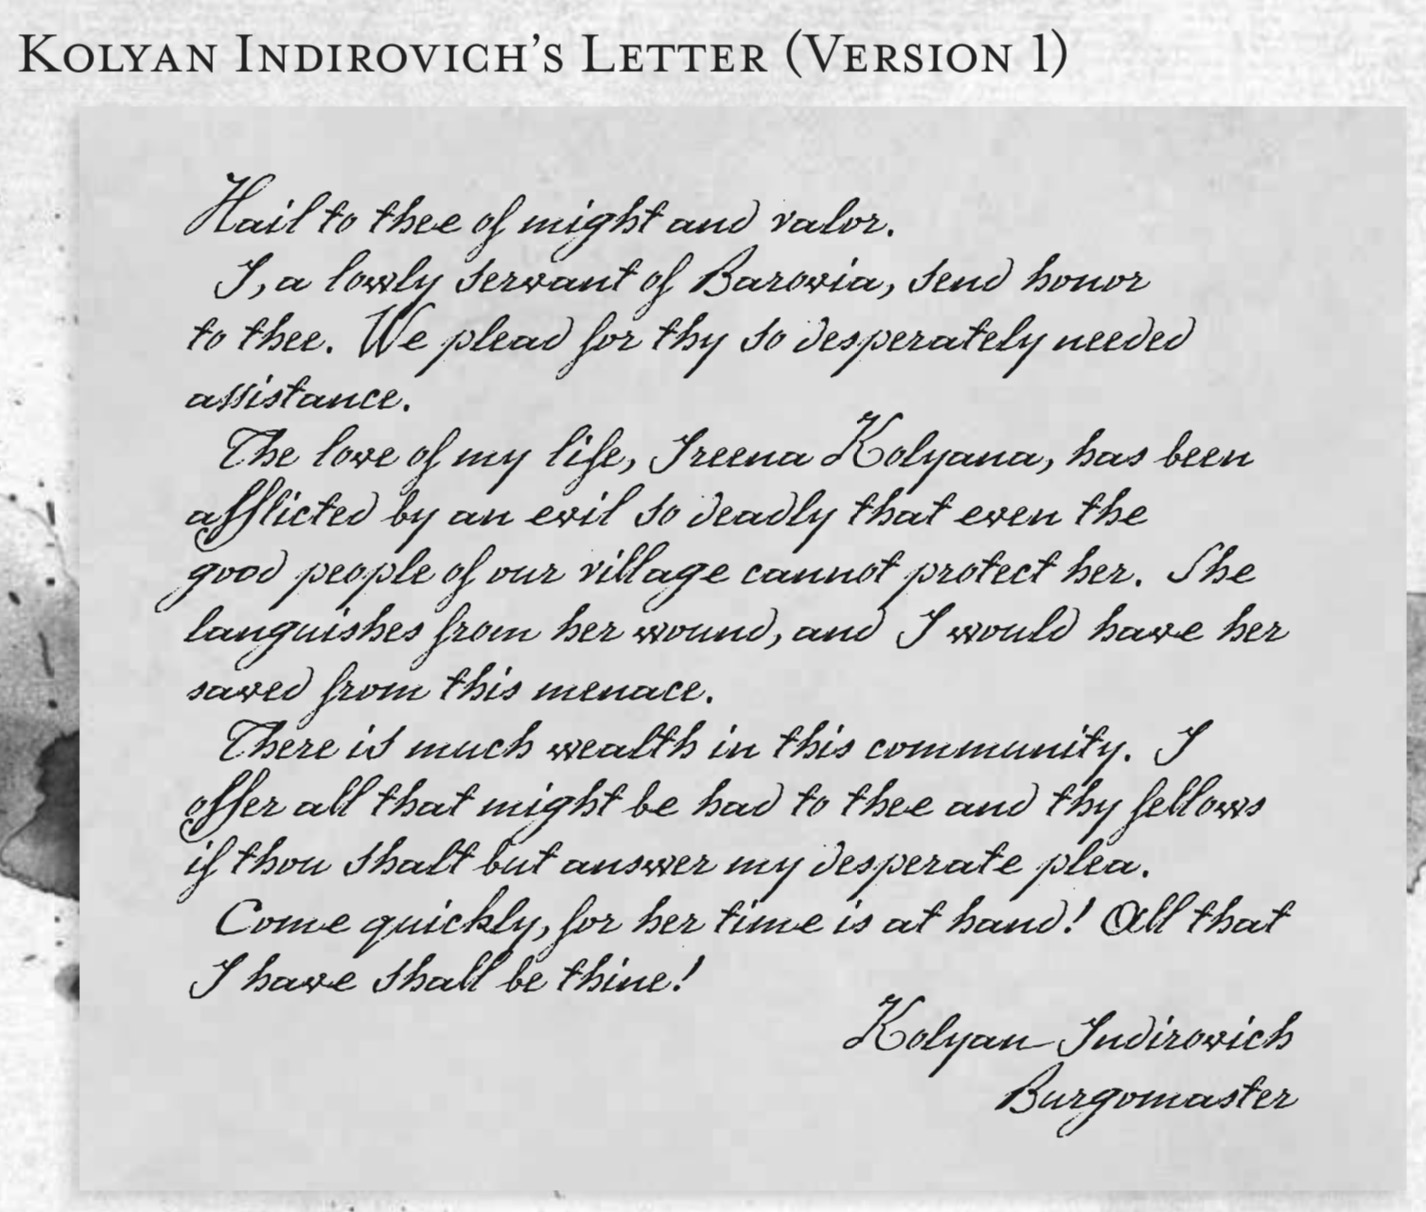 Kolyan Indirovich's Letter (Version 1)
Hail to thee of might and valor.
I, a lowly servant of Barovia, send honor
to thee. We plead for thy so desperately needed
assistance.
The love of my life, Ireena Kolyana, has been
afflicted by an evil so deadly that even the
good people of our village cannot protect her. She
languishes from her wound, and I would have her
saved from this menace.
There is much wealth in this community. I
offer all that might be had to thee and thy fellows
if thou shalt but answer my desperate plea.
Come quickly, for her time is at hand! All that
I have shall be thine!
Kolyan Indirovich
Burgomaster